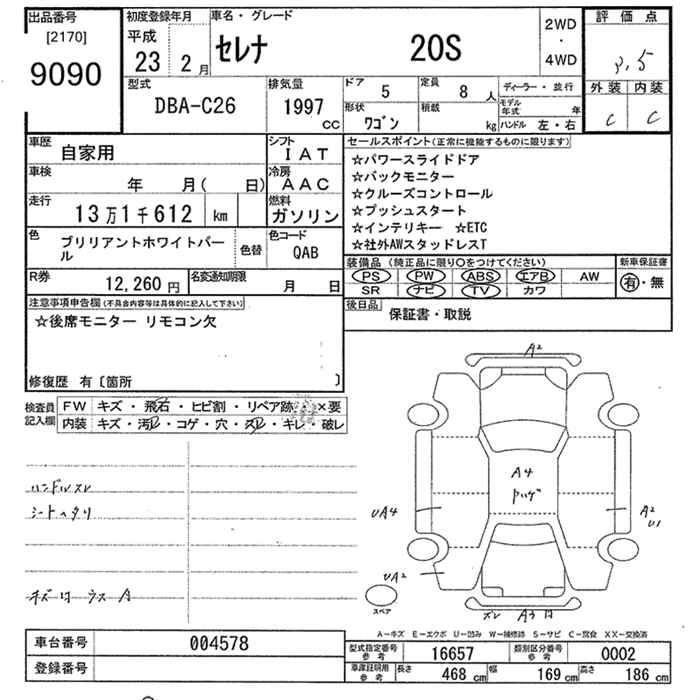 出品番号
[2170]
9090
初度登録年月
平成
23 2月
車名・グレード
セレナ 20S
2WD
・
4WD
評価点
3.5
外装 内装
C C
型式
DBA-C26
排気量
1997
CC
ドア 5
定員 8人
ディーラー・並行
形状
ワゴン
積載
kg
モデル年式 年
ハンドル 左・右
車歴
自家用
シフト
IAT
車検
年 月( 日)
冷房
AAC
走行
13万1千612 km
燃料
ガソリン
色
ブリリアントホワイトパール
色替
色コード
QAB
R券
12,260円
名変通知期限
月 日
セールスポイント(正常に機能するものに限ります)
☆パワースライドドア
☆バックモニター
☆クルーズコントロール
☆プッシュスタート
☆インテリキー ☆ETC
☆社外AWスタッドレスT
装備品(純正品に限り○をつけてください)
新車保証書
PS PW ABS エアB AW
SR ナビ TV カワ
有・無
後日品
保証書・取説
注意事項申告欄(不具合内容等は具体的に記入して下さい)
☆後席モニター リモコン欠
修復歴 有〔箇所 〕
検査員記入欄
FW キズ・飛石・ヒビ割・リペア跡・×要
内装 キズ・汚レ・コゲ・穴・スレ・キレ・破レ
ハンドルスレ
シートヘタリ
キズ ウス A
A2
A4
UA4
A2
U1
UA2
スペア
スレ
A-キズ E-エクボ U-凹み W-補修跡 S-サビ C-腐食 XX-交換済
車台番号 004578
登録番号
型式指定番号参考 16657
類別区分番号参考 0002
車庫証明用参考 長さ 468cm 幅 169cm 高さ 186cm